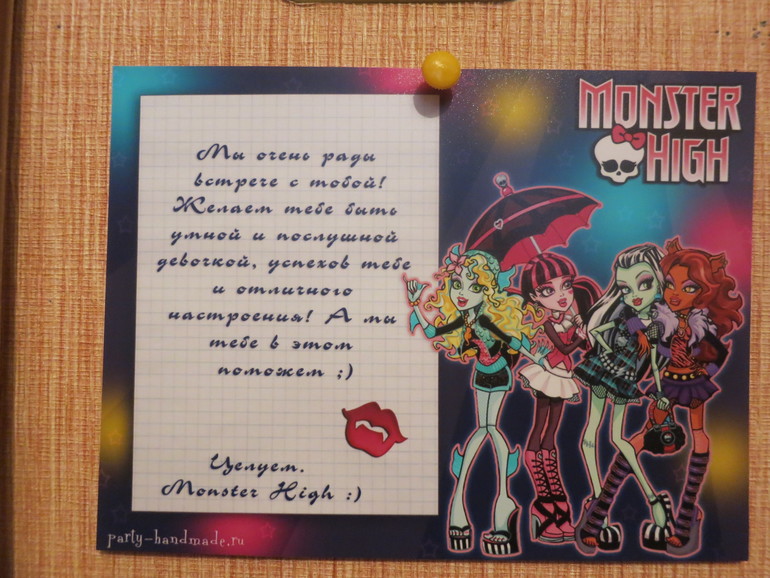 Мы очень рады
встрече с тобой!
Желаем тебе быть
умной и послушной
девочкой, успехов тебе
и отличного
настроения! А мы
тебе в этом
поможем ;)
Целуем.
Monster High :)
party-handmade.ru
MONSTER
HIGH